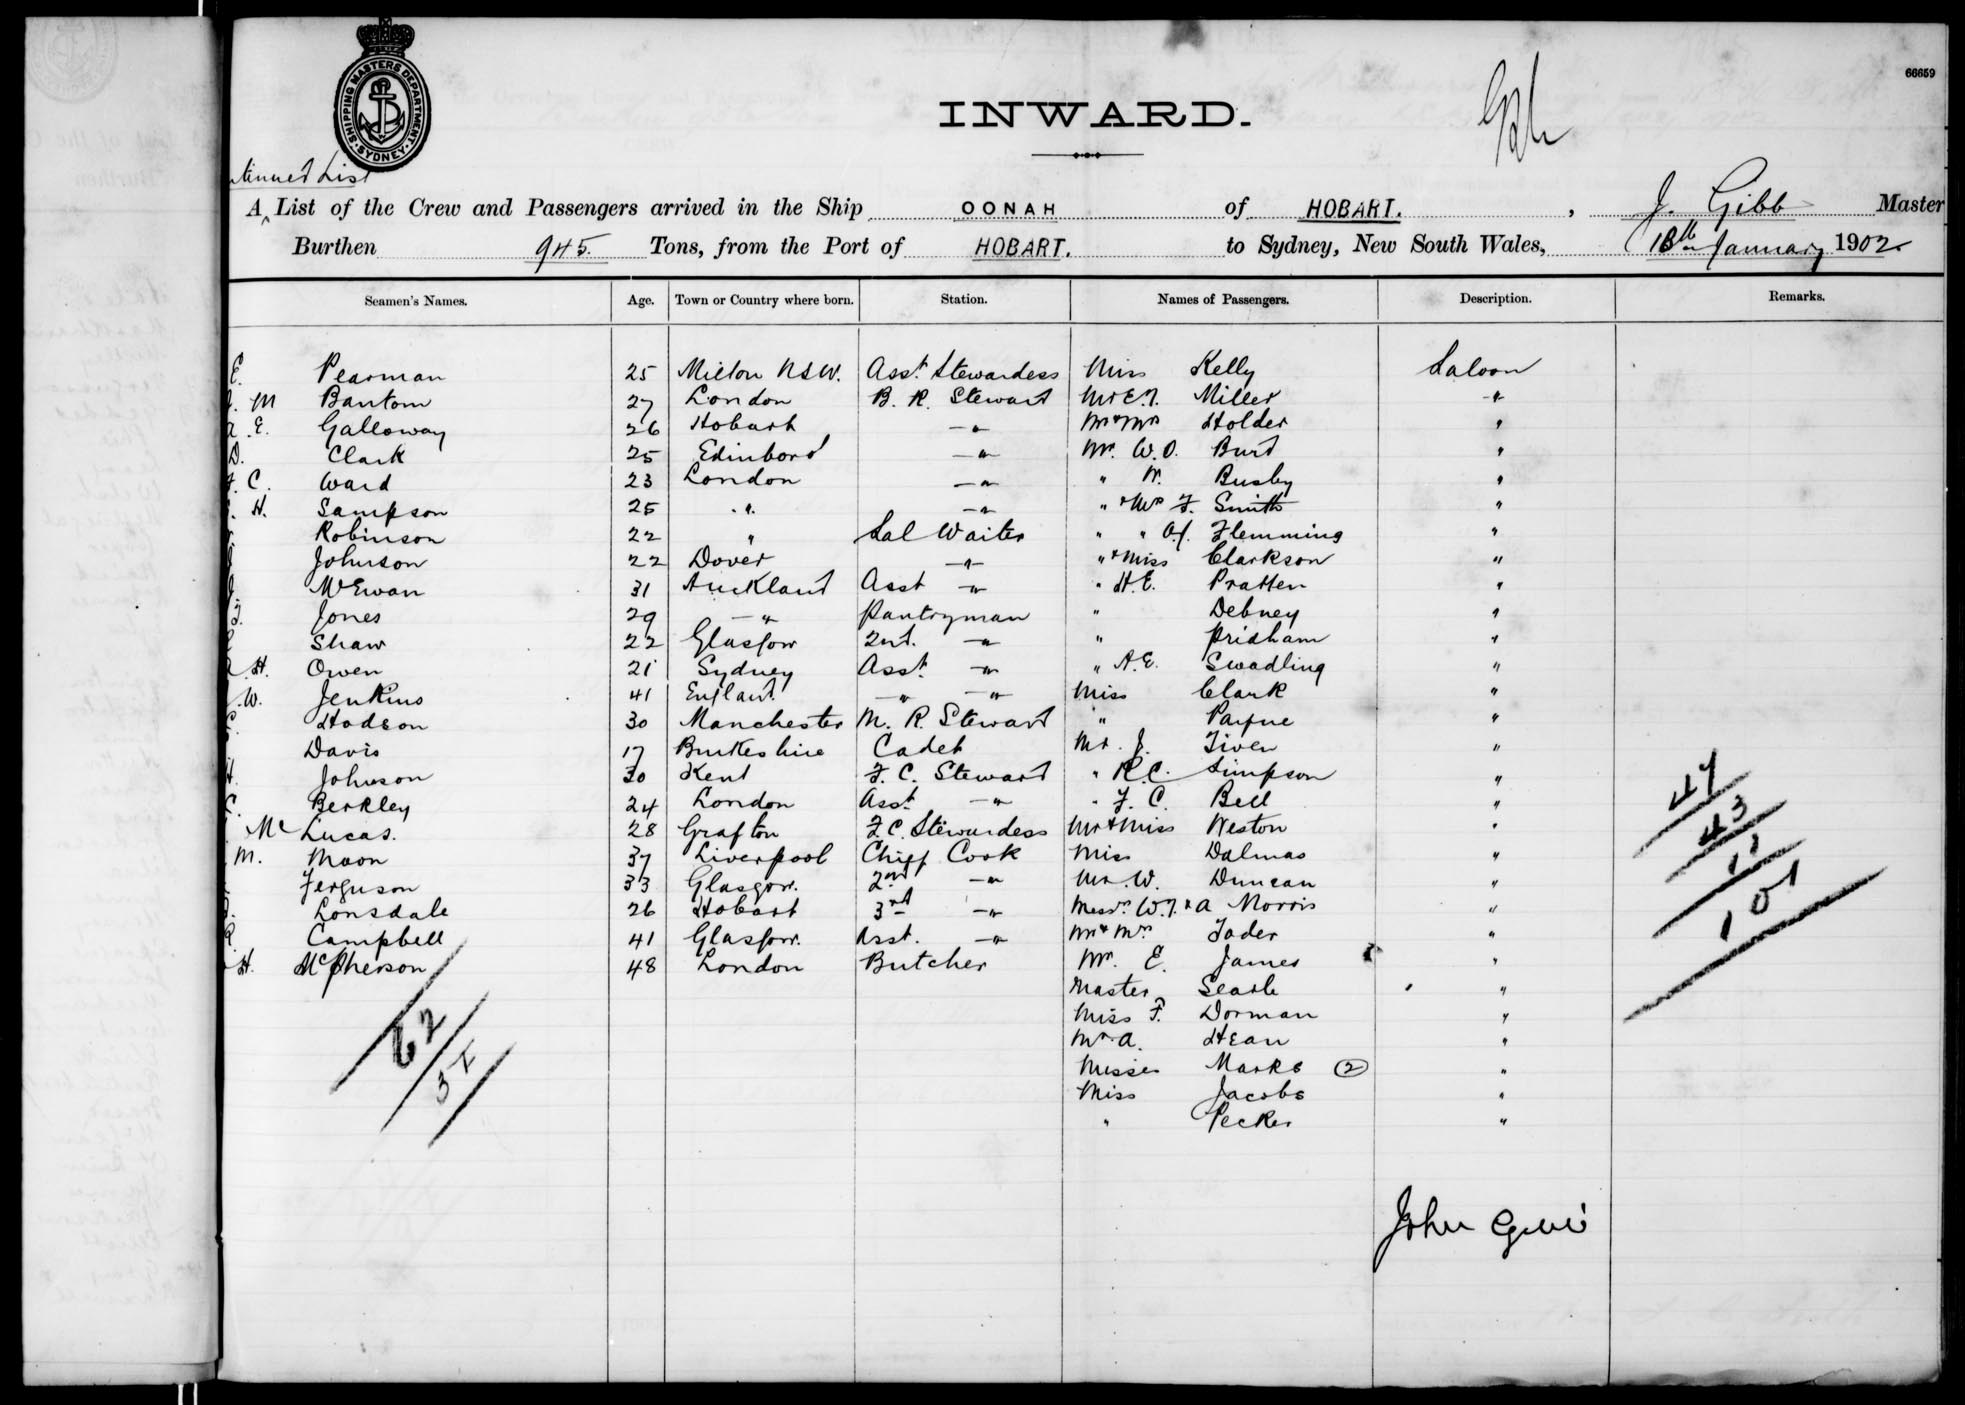 SHIPPING MASTERS DEPARTMENT. SYDNEY.
66659
INWARD.
List
A List of the Crew and Passengers arrived in the Ship OONAH of HOBART. , J. Gibb Master
Burthen 945. Tons, from the Port of HOBART. to Sydney, New South Wales, January 1902
Seamen's Names. Age. Town or Country where born. Station. Names of Passengers. Description. Remarks.
E. Pearman 25 Milton NSW. Asst Stewardess Miss Kelly Saloon
M Bantom 27 London B. R. Stewart Mr E.T. Miller "
E. Galloway 26 Hobart " Mr & Mrs Holder "
D. Clark 25 Edinboro' " Mr. W.O. Burd "
C. Ward 23 London " " W. Busby "
H. Sampson 25 " " " & Mrs F. Smith "
Robinson 22 " Sal Waiter " " A.J. Flemming "
Johnson 22 Dover " " & Miss Clarkson "
McEwan 31 Auckland Asst " " H.E. Pratten "
Jones 29 " Pantryman " Debney "
Shaw 22 Glasgow 2nd. " " Pridham "
H. Owen 21 Sydney Asst. " " A.E. Swadling "
W. Jenkins 41 England. " " Miss Clark "
Hodson 30 Manchester M. R. Stewart " Payne "
Davis 17 Cadet Mr. J. Tiven "
H. Johnson 30 Kent F. C. Stewart " R.C. Simpson "
C. Berkley 24 London Asst. " " F. C. Bell "
Mc Lucas. 28 Grafton F.C. Stewardess Mr & Miss Weston "
M. Moon 37 Liverpool Chief Cook Miss Dalmas "
Ferguson 33 Glasgow. 2nd " Mr. W. Duncan "
Lonsdale 26 Hobart 3rd " Messrs W.T. & A Morris "
R. Campbell 41 Glasgow. Asst. " Mr & Mrs Tader "
H. McPherson 48 London Butcher Mr. E. James "
Master Searle "
Miss F. Dorman "
Mr A. Hean "
Misses Marks 2 "
Miss Jacobs "
" Pecker "
47
43
11
101
62
John Gibb